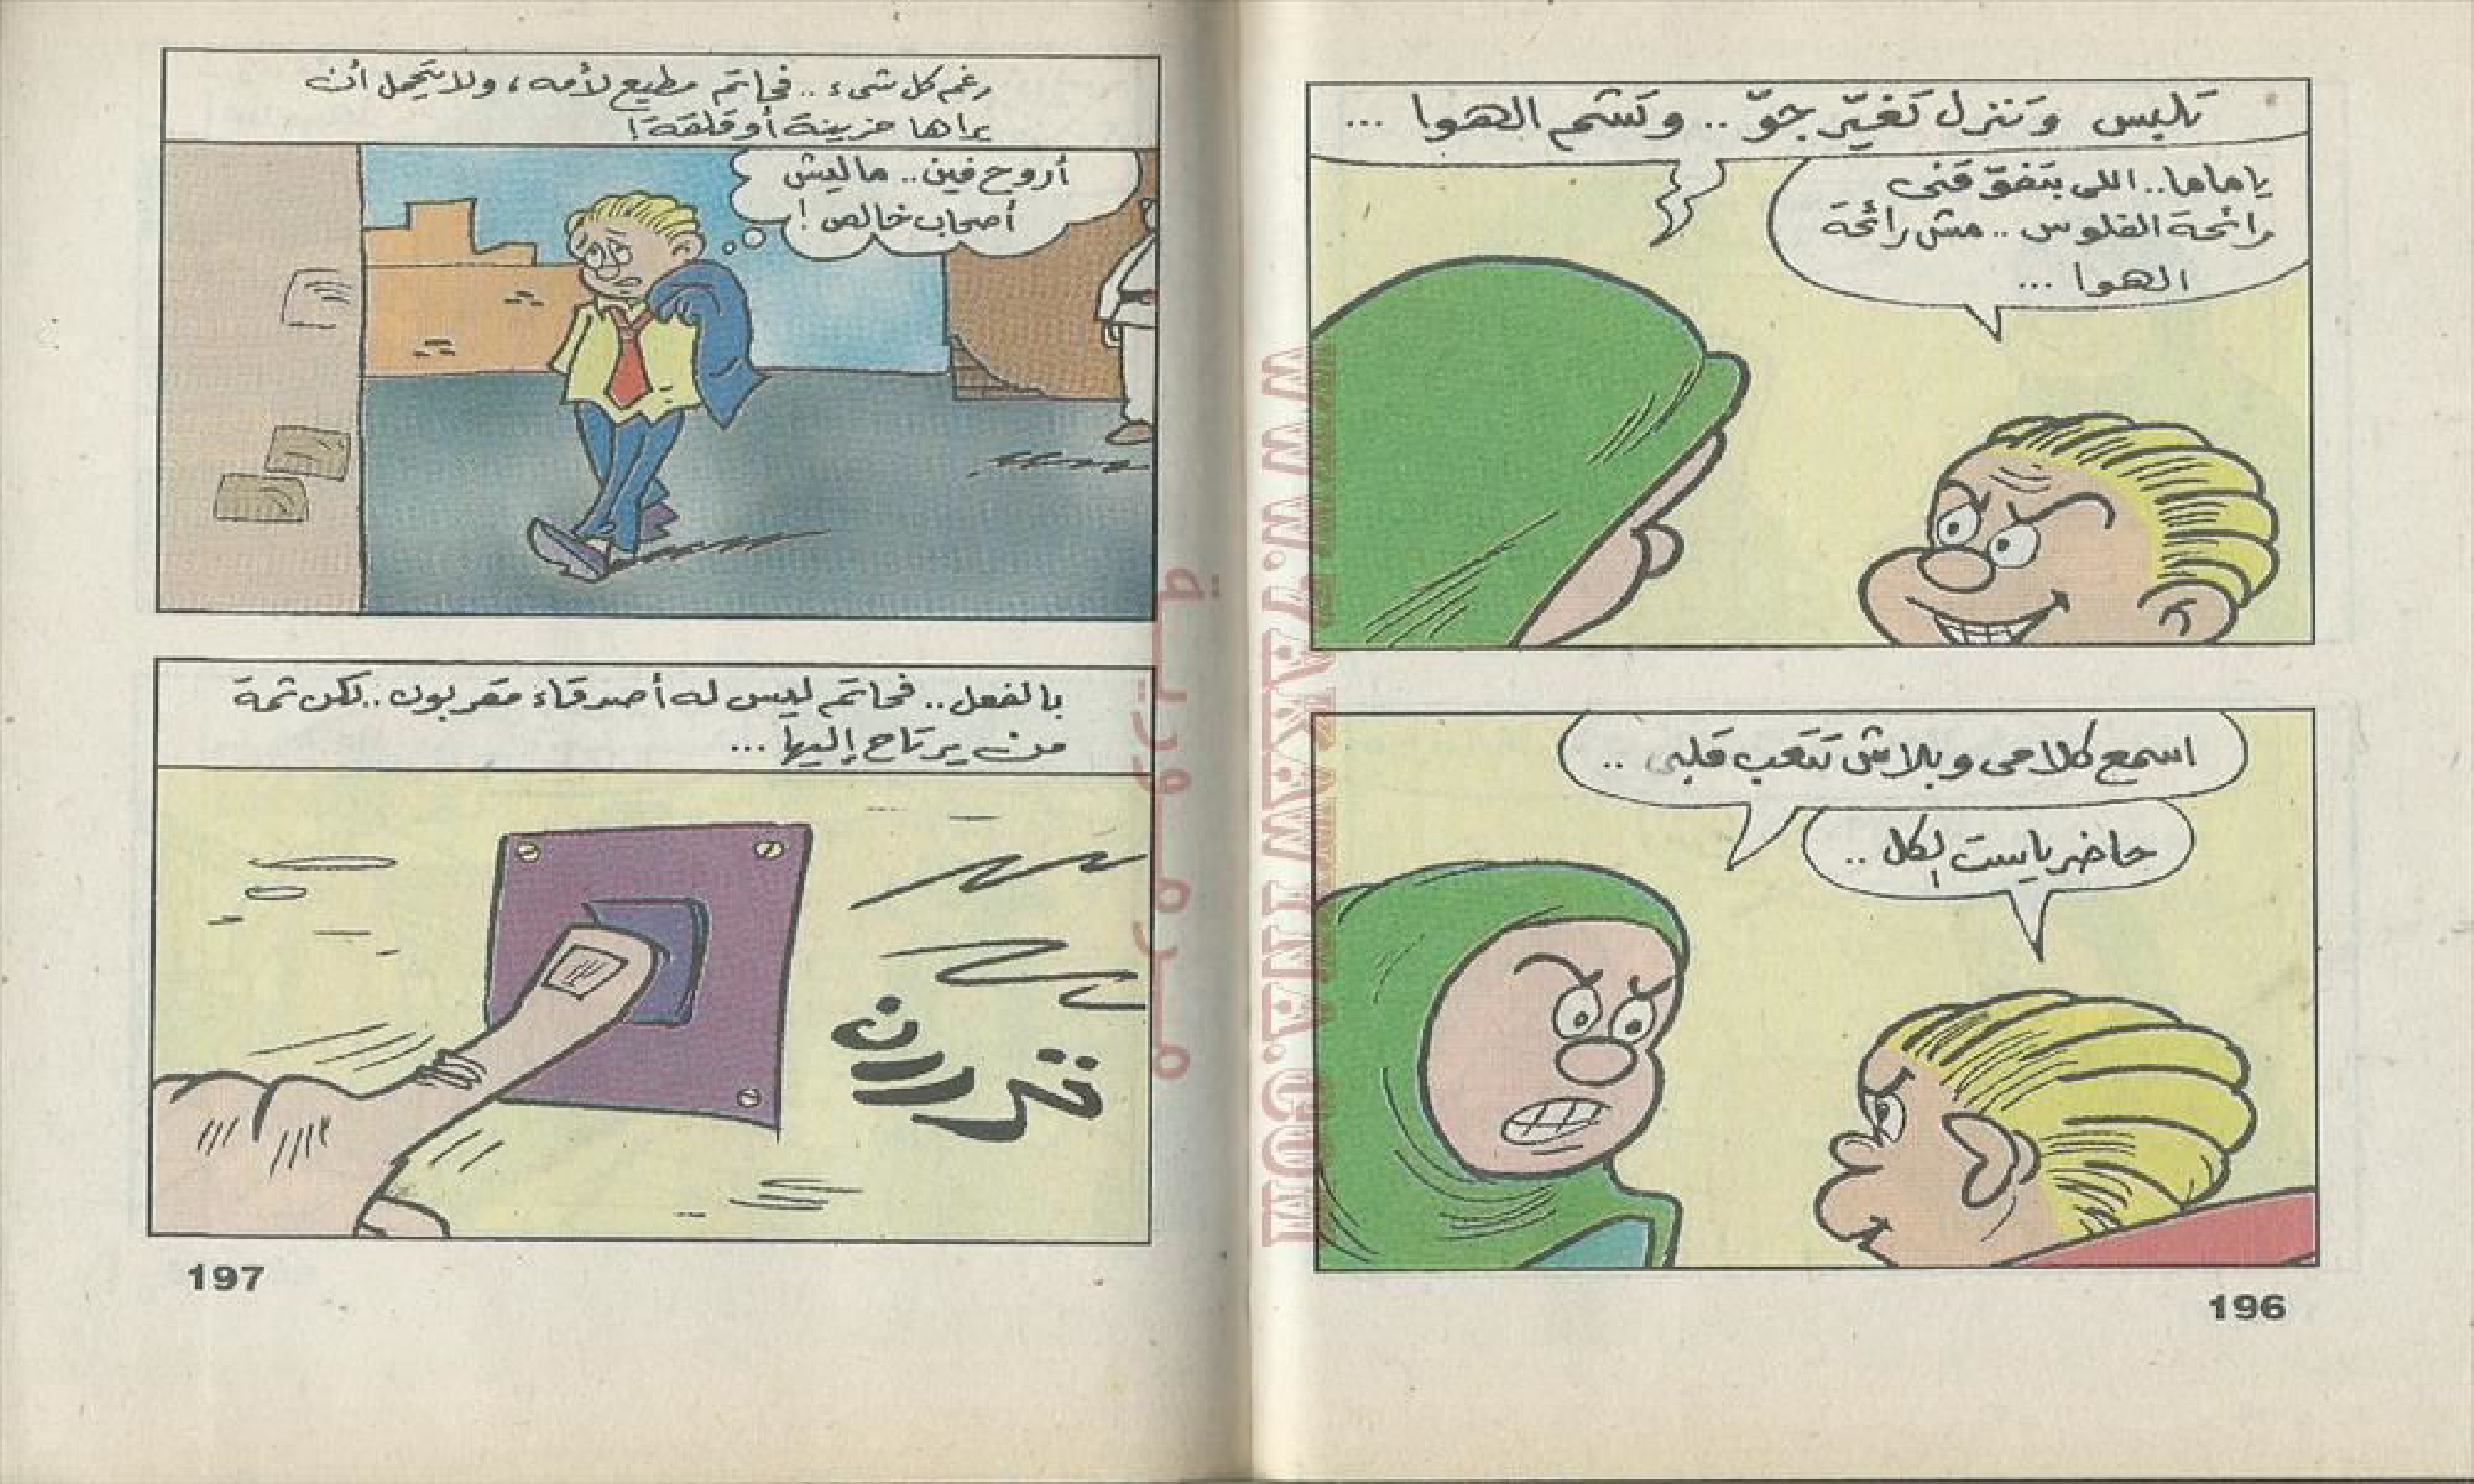 تلبس وتنزل تغيّر جوّ .. وتشم الهوا ...
يا ماما.. اللى بتفوّقنى
رائحة الفلوس .. مش رائحة
الهوا ...
اسمع كلامى وبلاش تتعب قلبى ..
حاضر ياست الكل ..
196
رغم كل شىء .. فحاتم مطيع لأمه ، ولا يتحمل أن
يراها حزينة أو قلقة !
أروح فين .. ماليش
أصحاب خالص !
بالفعل .. فحاتم ليس له أصدقاء مقربون .. لكن ثمة
من يرتاح إليها ...
تررررن
197
مرمورية
WWW.VAREWYTNA.COM